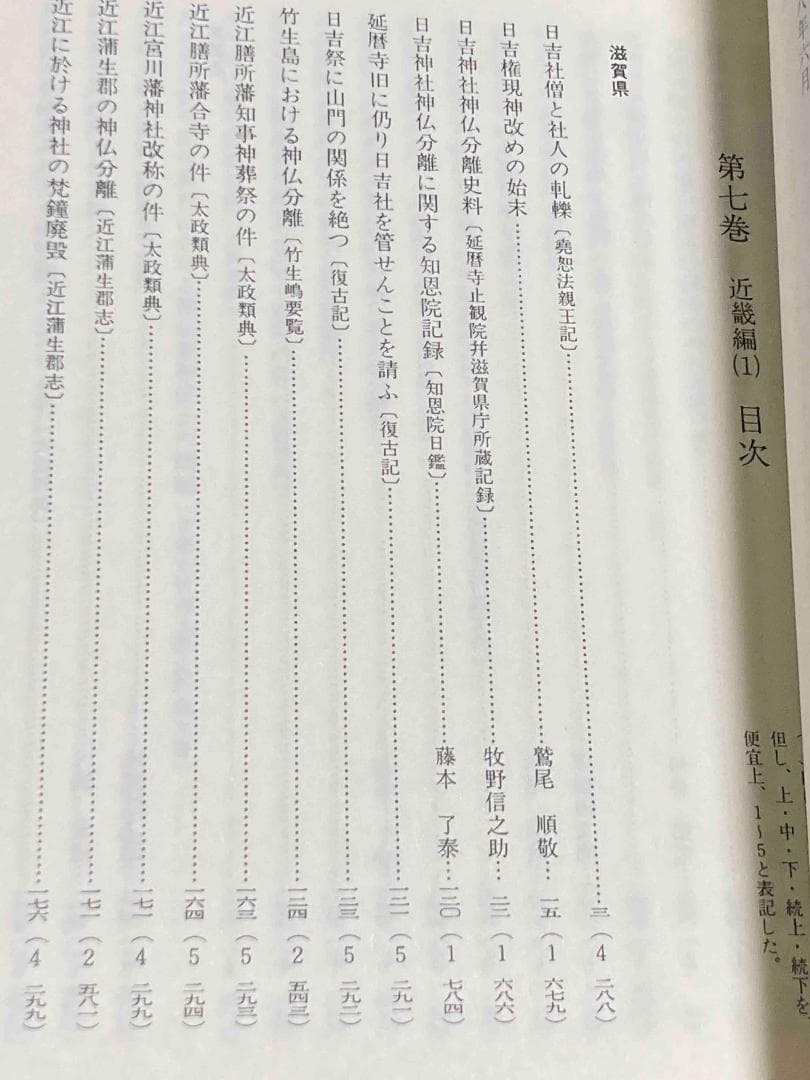 但し、上・中・下・続上・続下を、
便宜上、1〜5と表記した。
第七巻　近畿編(1)　目次
滋賀県
日吉社僧と社人の軋轢〔堯恕法親王記〕……三(4 二八八)
日吉権現神改めの始末……鷲尾　順敬…一五(1 六七九)
日吉神社神仏分離史料〔延暦寺止観院幷滋賀県庁所蔵記録〕……牧野信之助…二二(1 六八六)
日吉神社神仏分離に関する知恩院記録〔知恩院日鑑〕……藤本　了泰…一二〇(1 七八四)
延暦寺旧に仍り日吉社を管せんことを請ふ〔復古記〕……一二一(5 二九一)
日吉祭に山門の関係を絶つ〔復古記〕……一二三(5 二九二)
竹生島における神仏分離〔竹生嶋要覧〕……一二四(2 五四三)
近江膳所藩知事神葬祭の件〔太政類典〕……一六三(5 二九三)
近江膳所藩合寺の件〔太政類典〕……一六四(5 二九四)
近江宮川藩神社改称の件〔太政類典〕……一七一(4 二九九)
近江蒲生郡の神仏分離〔近江蒲生郡志〕……一七一(2 五八一)
近江に於ける神社の梵鐘廃毀〔近江蒲生郡志〕……一七六(4 二九九)